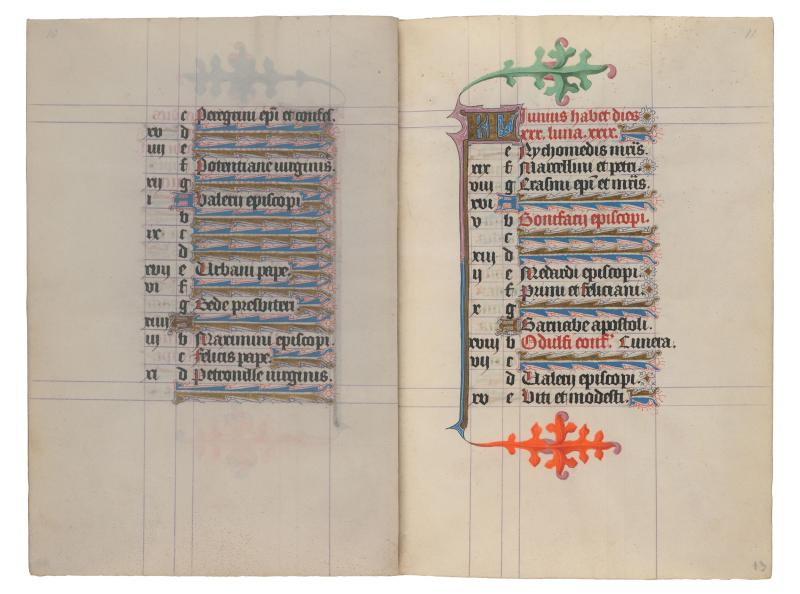 10
c Peregrini ep̄i et confes.
xv d
iiij e
f Potentiane uirginis.
xij g
i A Valerij episcopi
b
ix c
d
xvij e Urbani pape.
vi f
g Bede presbiteri
xiiij A
iij b Maximini episcopi.
c Felicis pape.
xi d Petronille uirginis.
11
KL Iunius habet dies
xxx. luna. xxix.
e Nychomedis mr̄is.
xix f Marcellini et petri.
viij g Erasmi ep̄i et mr̄is.
xvi A
v b Bonifacij episcopi.
c
xiij d
ij e Medardi episcopi.
f Primi et feliciani.
x g
A Barnabe apostoli.
xviij b Odulfi conf. Cunera.
vij c
d Valerij episcopi.
xv e Viti et modesti.
13